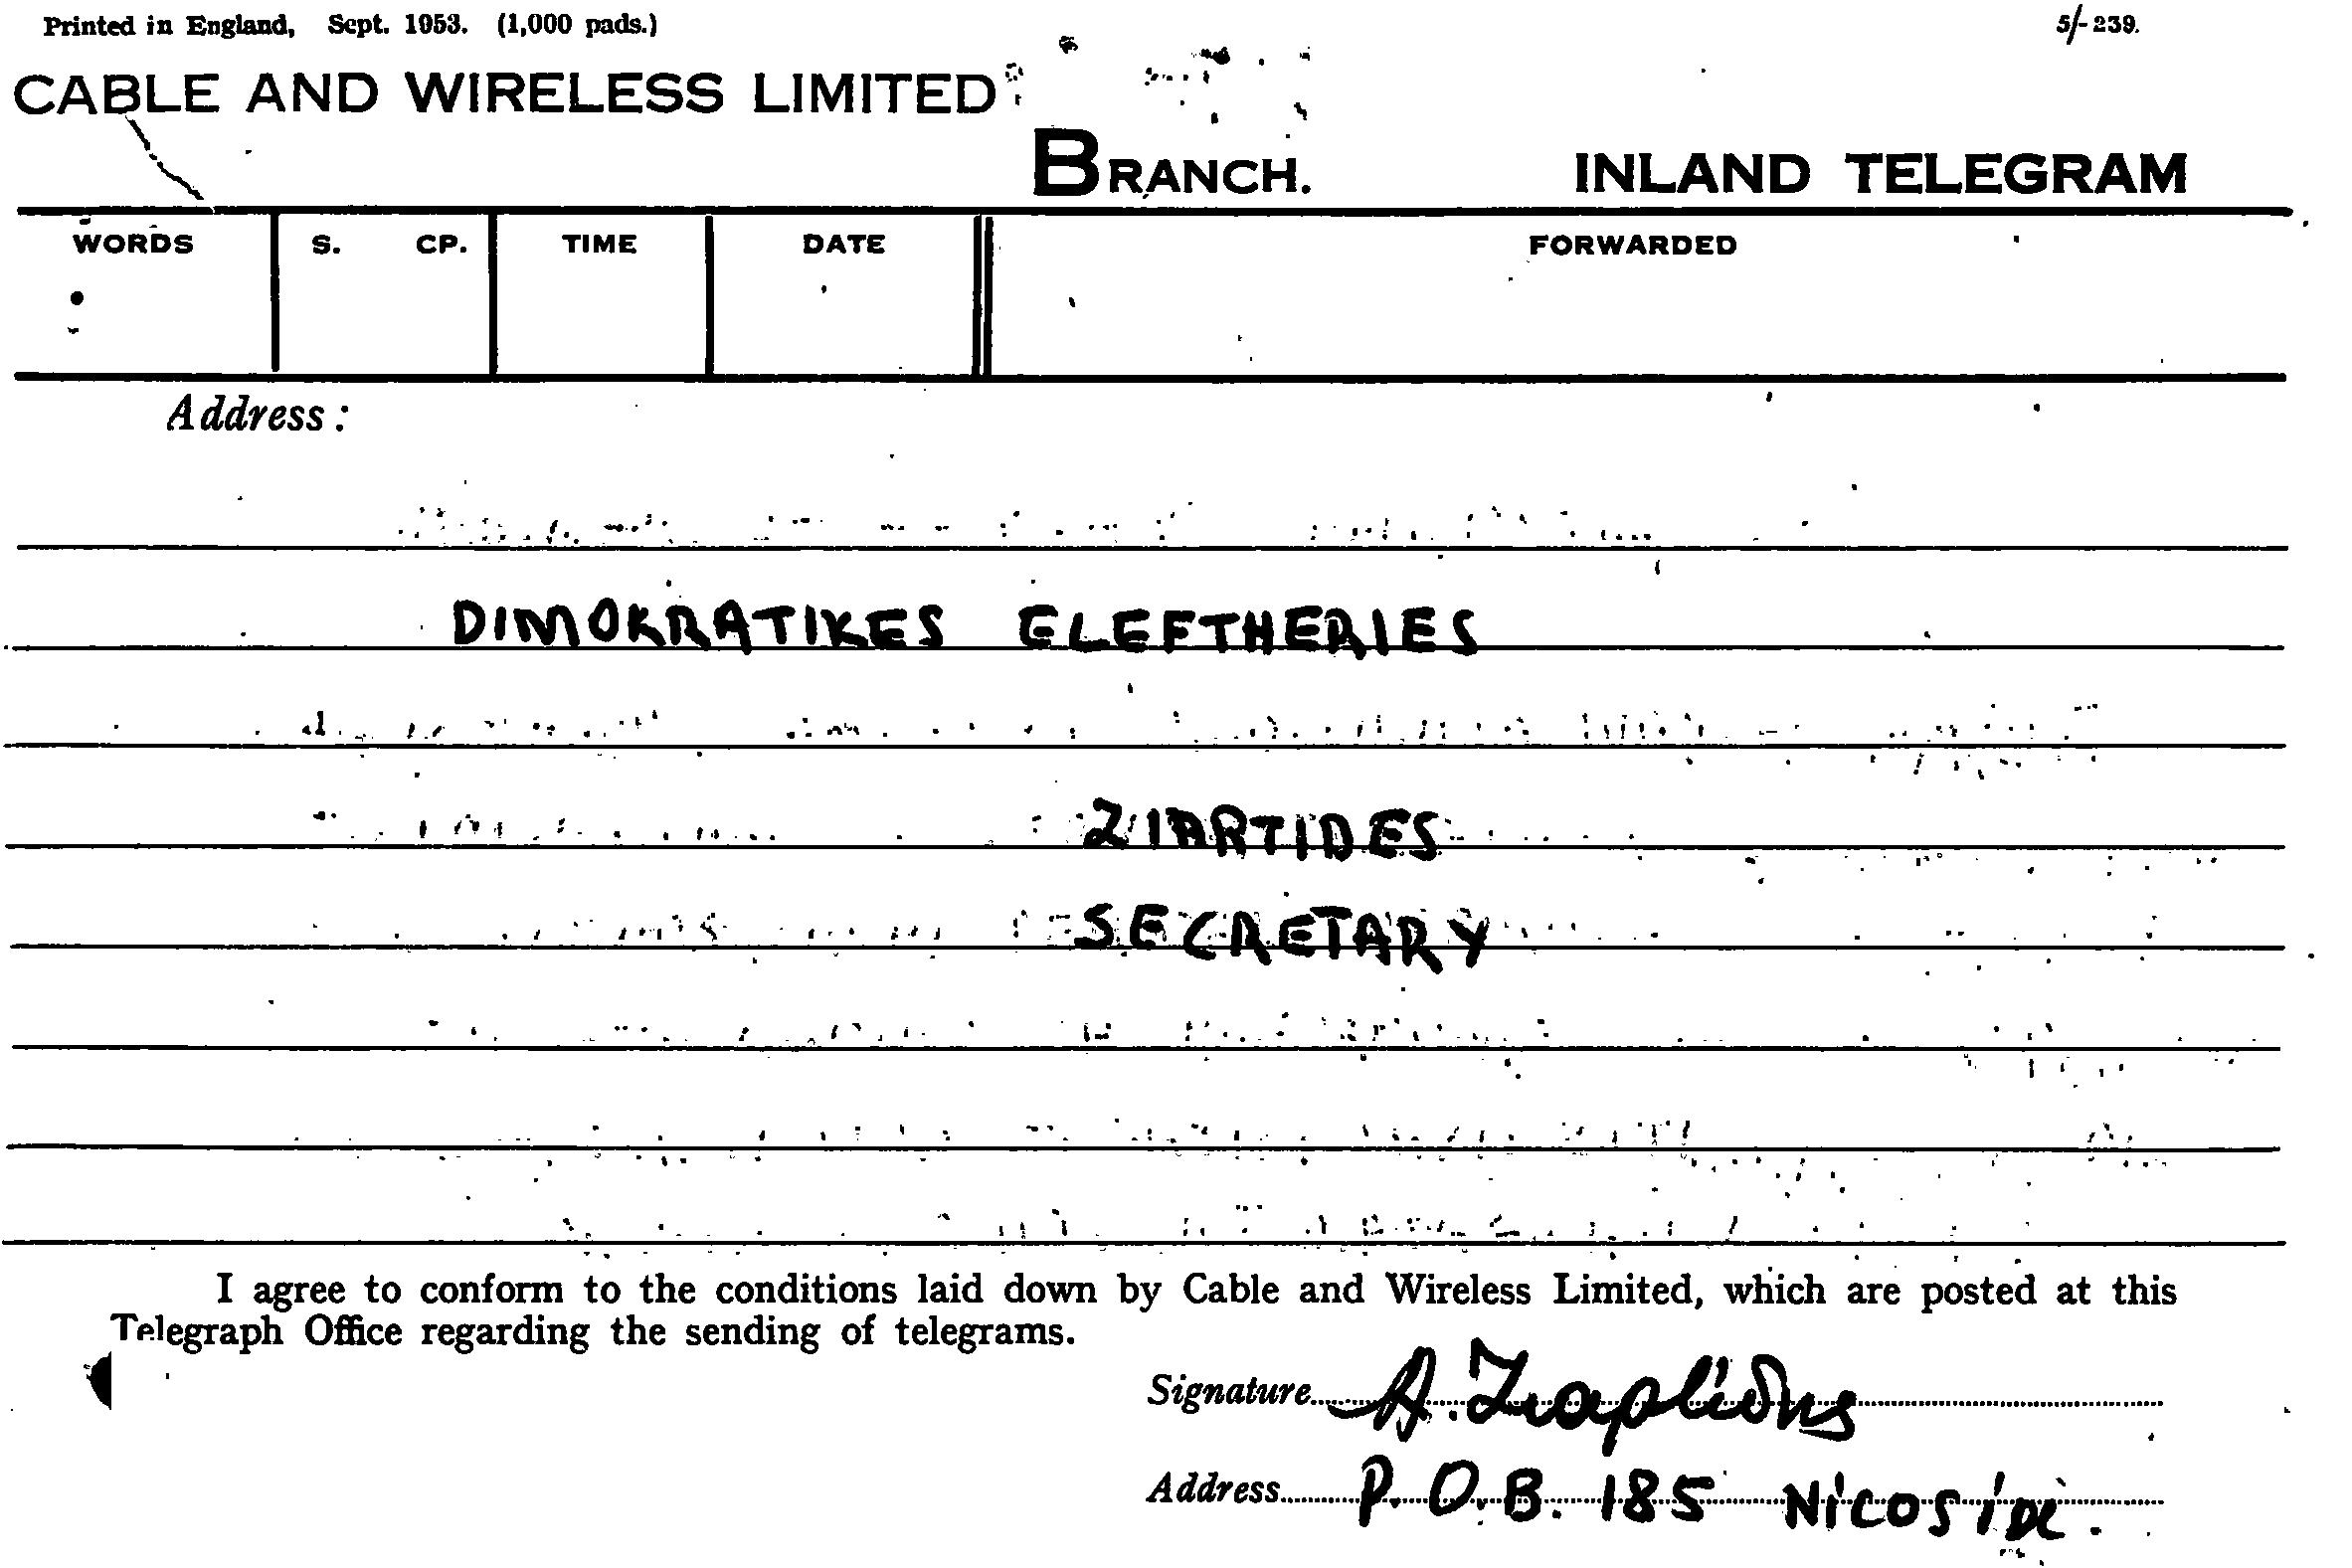 Printed in England, Sept. 1953. (1,000 pads.) 5/-239.
CABLE AND WIRELESS LIMITED
BRANCH. INLAND TELEGRAM
WORDS S. CP. TIME DATE FORWARDED
Address:
DIMOKRATIKES ELEFTHERIES
ZIARTIDES
SECRETARY
I agree to conform to the conditions laid down by Cable and Wireless Limited, which are posted at this
Telegraph Office regarding the sending of telegrams.
Signature Α. Ζιαρτίδης
Address P.O.B. 185 Nicosia.